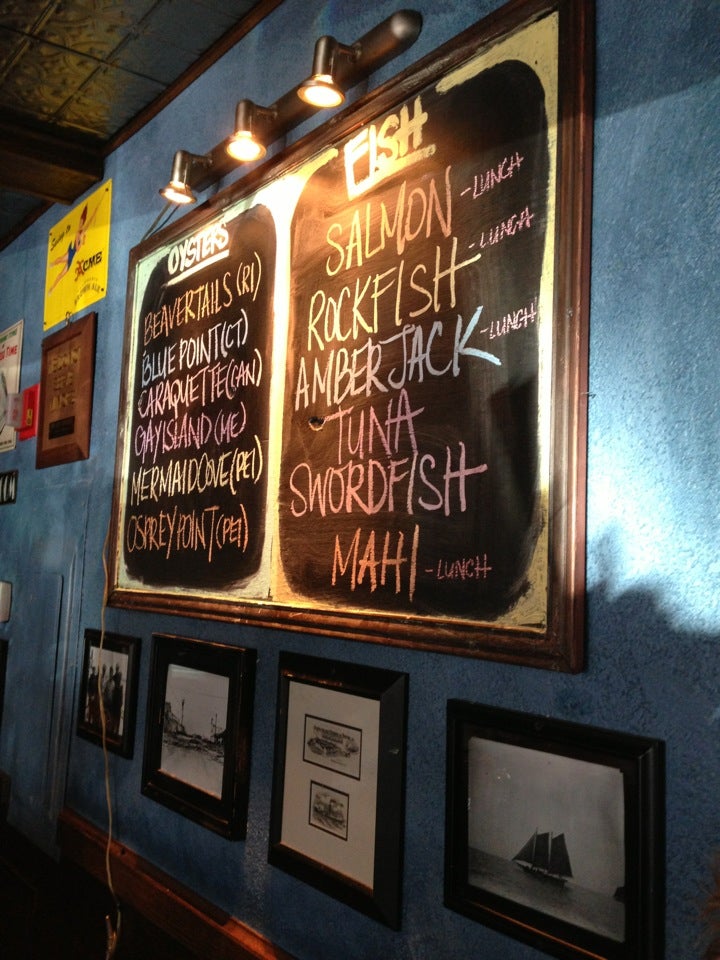 OYSTERS
BEAVERTAILS (RI)
BLUE POINT (CT)
CARAQUETTE (CAN)
GAY ISLAND (ME)
MERMAID COVE (PEI)
OSPREY POINT (PEI)
FISH
SALMON - LUNCH
ROCKFISH - LUNCH
AMBERJACK - LUNCH
TUNA
SWORDFISH
MAHI - LUNCH
ACME
BROWN ALE
TIME